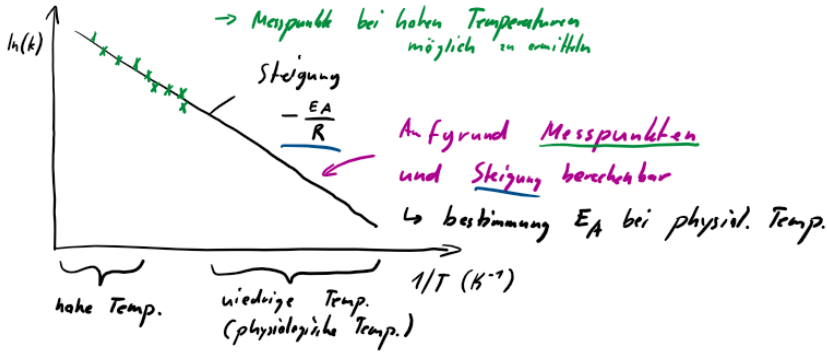 → Messpunkte bei hohen Temperaturen
möglich zu ermitteln
ln(k)
Steigung
- EA/R
Aufgrund Messpunkten
und Steigung berechenbar
↳ bestimmung EA bei physiol. Temp.
1/T (K⁻¹)
hohe Temp.
niedrige Temp.
(physiologische Temp.)